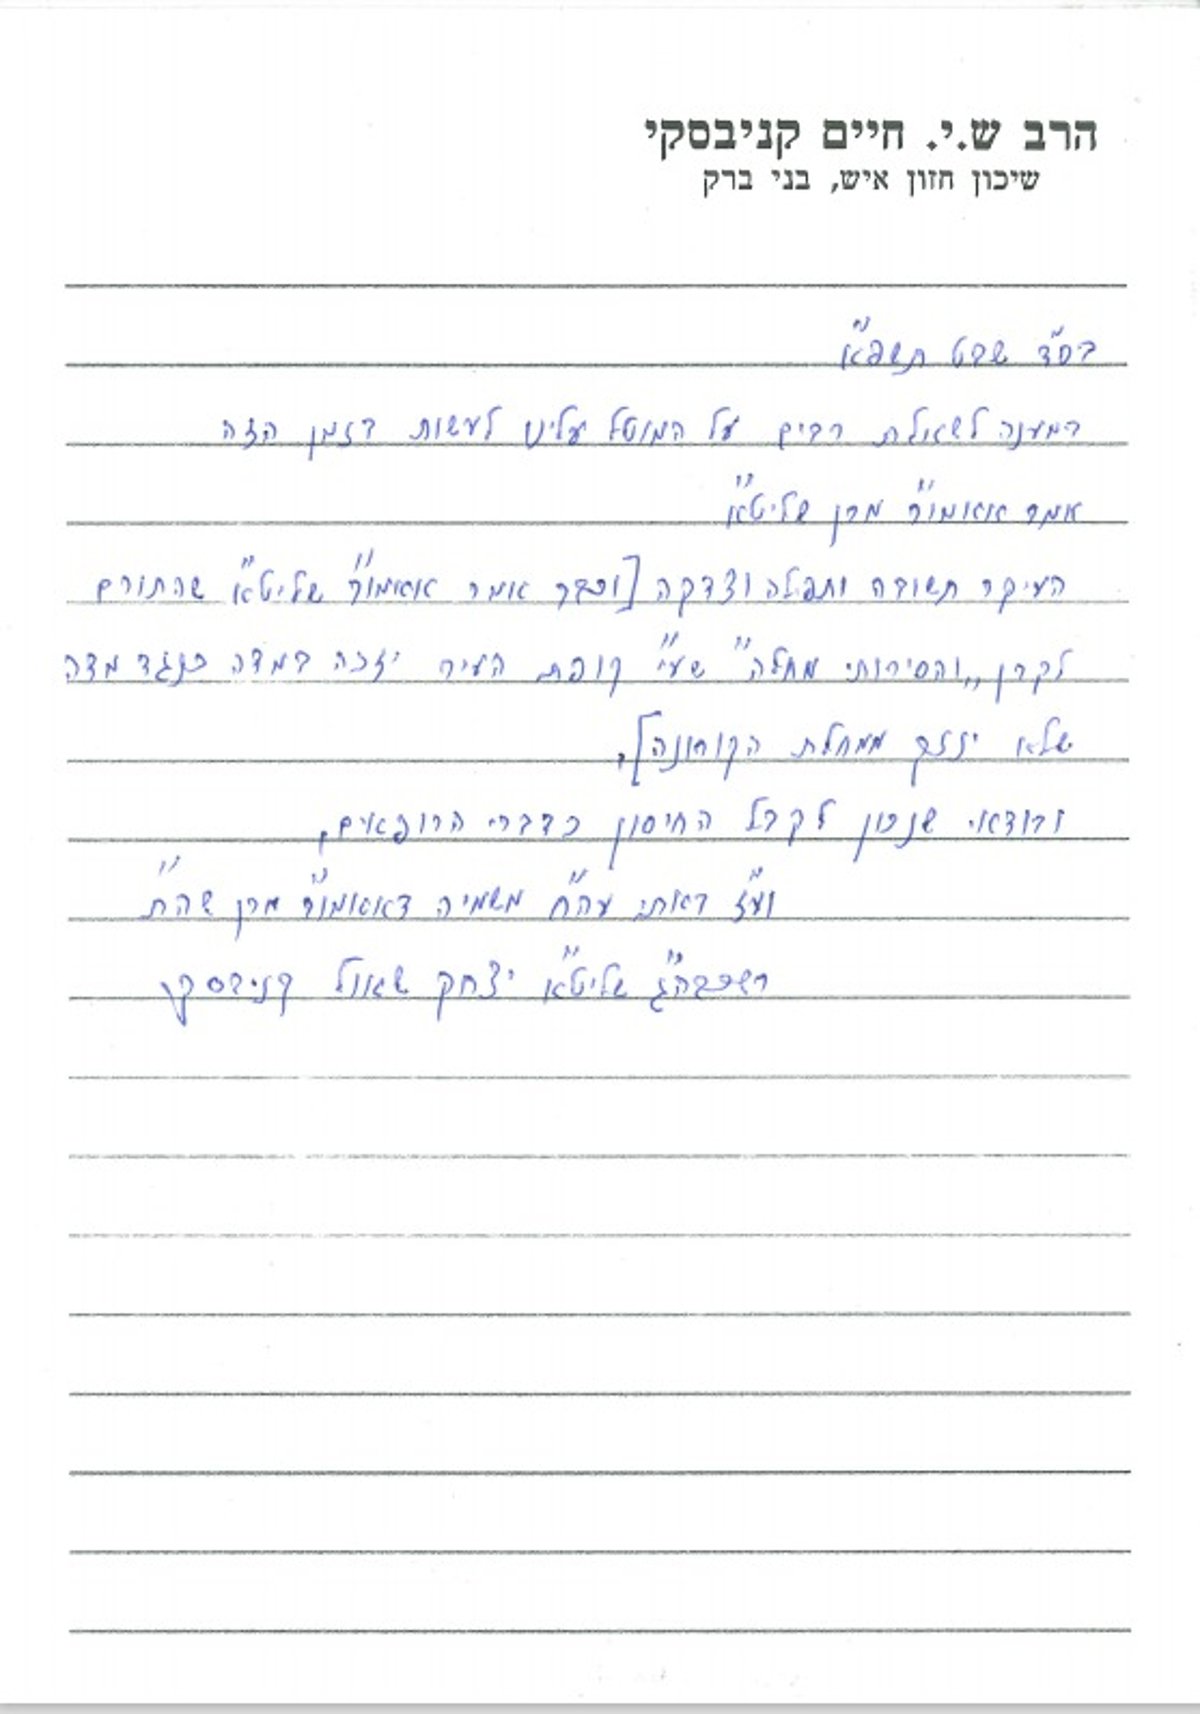 הרב ש.י. חיים קניבסקי
שיכון חזון איש, בני ברק
בס"ד שבט תשפ"א
במענה לשאלת רבים על המוטל עלינו לעשות בזמן הזה
אמר אאמו"ר מרן שליט"א
העיקר תשובה ותפלה וצדקה [וכבר אמר אאמו"ר שליט"א שהתורם
לקרן „והסירותי מחלה" שע"י קופת העיר יזכה במדה כנגד מדה
שלא ינזק ממחלת הקורונה].
ובודאי שנכון לקבל החיסון כדברי הרופאים.
וע"ז באתי עה"ח משמיה דאאמו"ר מרן שה"ת
רשכבה"ג שליט"א יצחק שאול קניבסקי